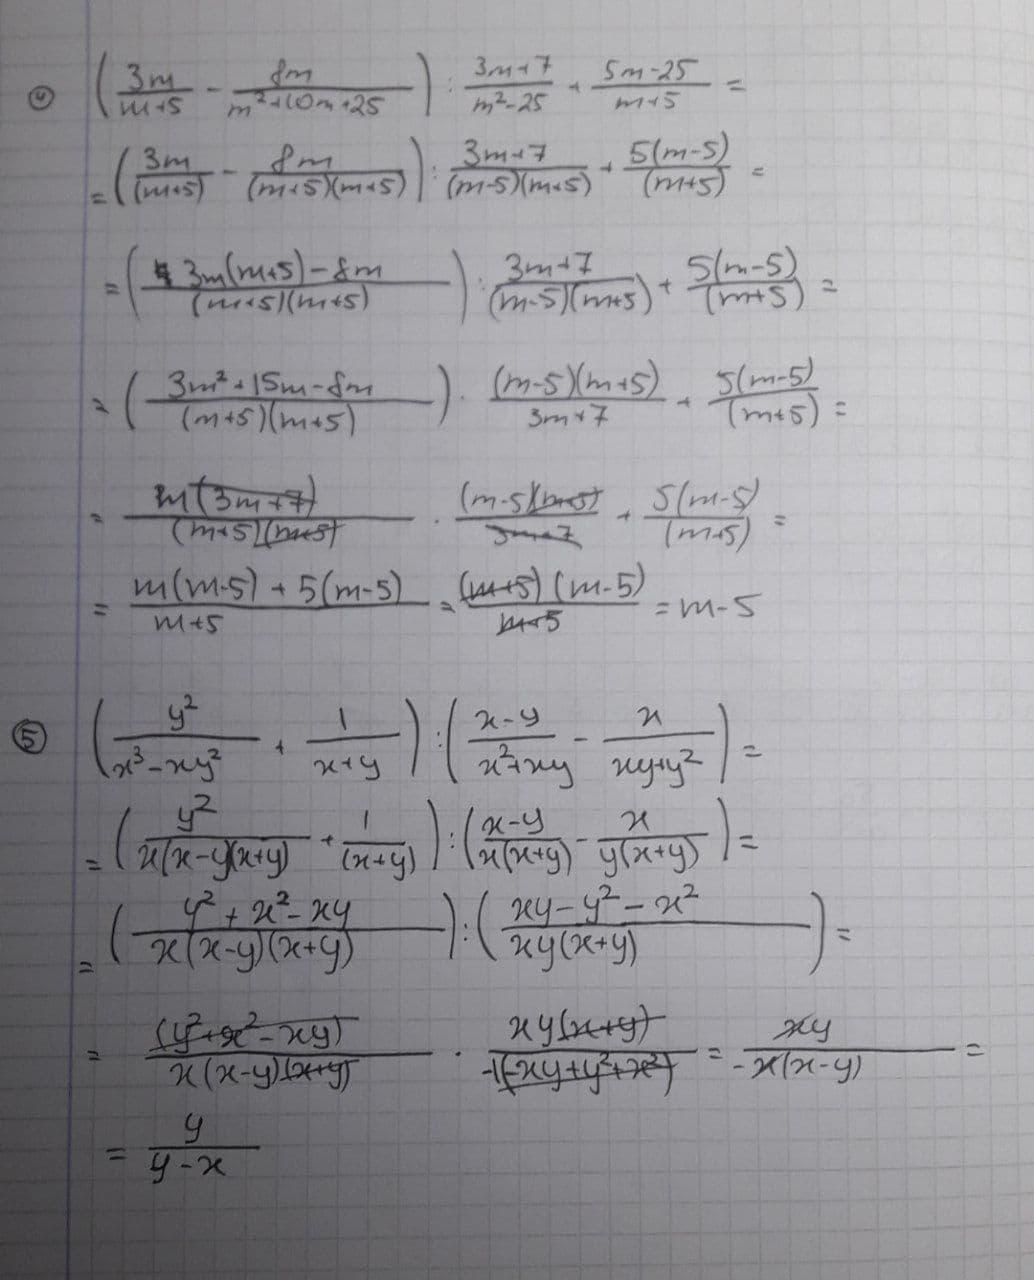 ④ (3m/(m+5) - 8m/(m²+10m+25)) : (3m+7)/(m²-25) + (5m-25)/(m+5) =
= (3m/(m+5) - 8m/((m+5)(m+5))) : (3m+7)/((m-5)(m+5)) + 5(m-5)/(m+5) =
= ((3m(m+5)-8m)/((m+5)(m+5))) : (3m+7)/((m-5)(m+5)) + 5(m-5)/(m+5) =
= ((3m²+15m-8m)/((m+5)(m+5))) · ((m-5)(m+5))/(3m+7) + 5(m-5)/(m+5) =
= m(3m+7)/((m+5)(m+5)) · ((m-5)(m+5))/(3m+7) + 5(m-5)/(m+5) =
= (m(m-5)+5(m-5))/(m+5) = ((m+5)(m-5))/(m+5) = m-5
⑤ (y²/(x³-xy²) + 1/(x+y)) : ((x-y)/(x²+xy) - x/(xy+y²)) =
= (y²/(x(x-y)(x+y)) + 1/(x+y)) : ((x-y)/(x(x+y)) - x/(y(x+y))) =
= ((y²+x²-xy)/(x(x-y)(x+y))) : ((xy-y²-x²)/(xy(x+y))) =
= (y²+x²-xy)/(x(x-y)(x+y)) · xy(x+y)/(-1(-xy+y²+x²)) = xy/(-x(x-y)) =
= y/(y-x)